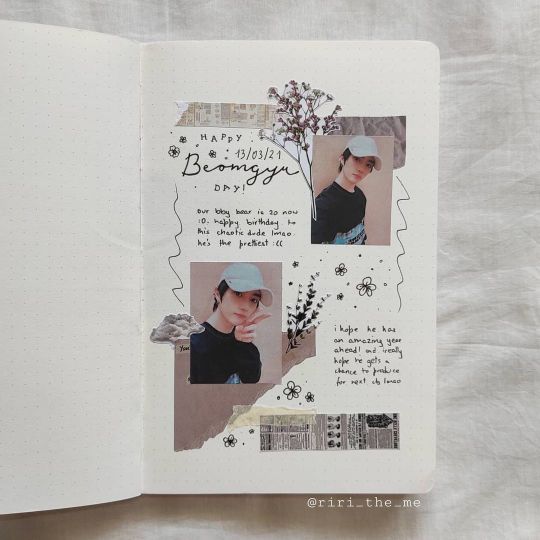 HAPPY
13/03/21
Beomgyu
DAY!
our bby bear is 20 now
:D. happy birthday to
this chaotic dude lmao.
he's the prettiest :((
i hope he has
an amazing year
ahead! and i really
hope he gets a
chance to produce
for next cb lmao
@riri_the_me